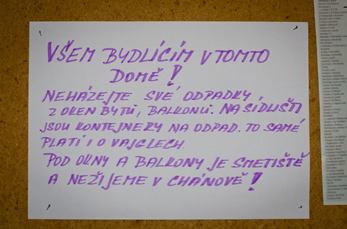 VŠEM BYDLÍCÍM V TOMTO
DOMĚ!
NEHÁZEJTE SVÉ ODPADKY
Z OKEN BYTŮ, BALKONŮ. NA SÍDLIŠTI
JSOU KONTEJNERY NA ODPAD. TO SAMÉ
PLATÍ I O VAJGLECH
POD OKNY A BALKONY JE SMETIŠTĚ
A NEŽIJEME V CHÁNOVĚ!